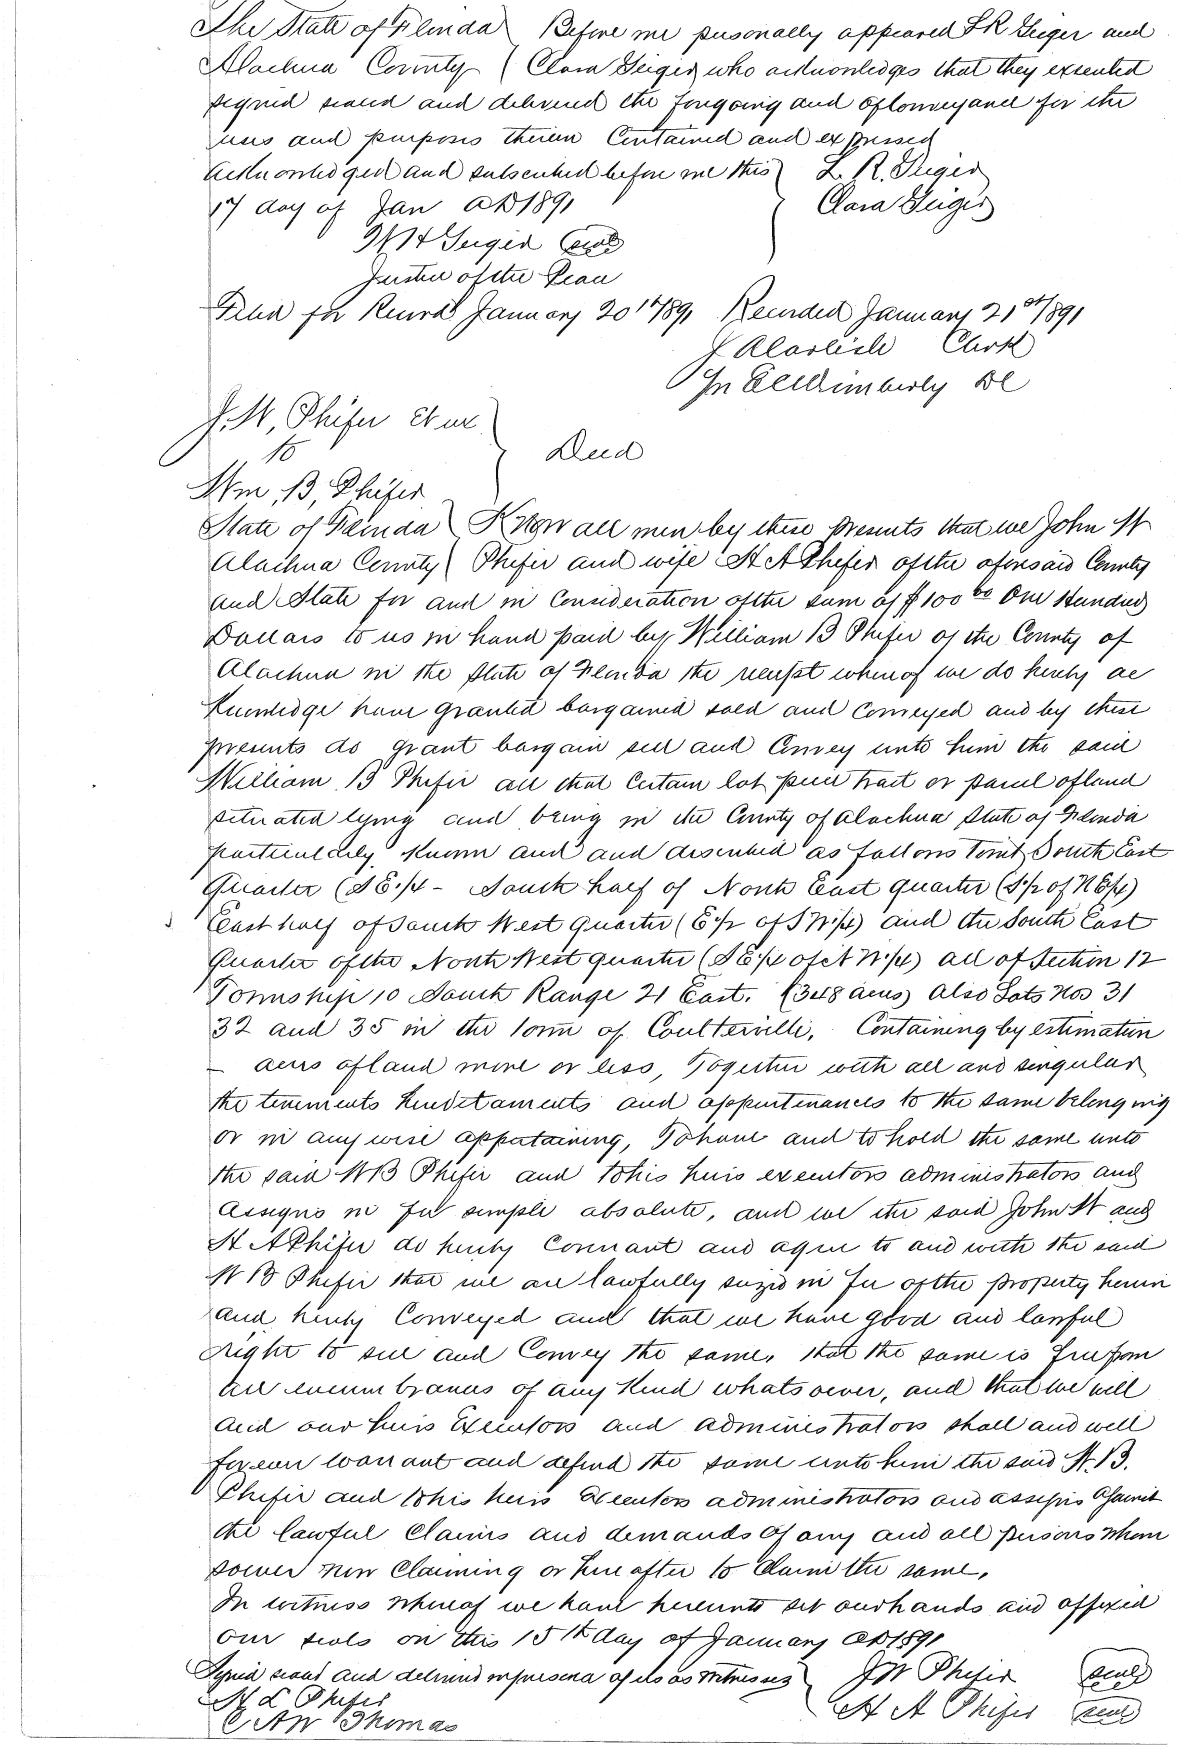 The State of Florida } Before me personally appeared L R Geiger and
Alachua County } Clara Geiger who acknowledges that they executed
signed sealed and delivered the foregoing and of conveyance for the
uses and purposes therein contained and expressed
Acknowledged and subscribed before me this } L. R. Geiger
17 day of Jan AD 1891 } Clara Geiger
W H Geiger (seal)
Justice of the Peace
Filed for Record January 20th 1891 Recorded January 21st 1891
J A Carlisle Clerk
Pr E C Wimberly DC
J. W, Phifer et ux
to } Deed
Wm, B, Phifer
State of Florida } Know all men by these presents that we John W
Alachua County } Phifer and wife H A Phifer of the aforesaid County
and State for and in consideration of the sum of $100 00 One Hundred
Dollars to us in hand paid by William B Phifer of the County of
Alachua in the State of Florida the receipt whereof we do hereby ac
knowledge have granted bargained sold and conveyed and by these
presents do grant bargain sell and convey unto him the said
William B Phifer all that certain lot piece tract or parcel of land
situated lying and being in the County of Alachua State of Florida
particularly known and and described as follows Towit, South East
Quarter (S E 1/4 - South half of North East quarter (S 1/2 of N E 1/4)
East half of South West quarter (E 1/2 of S W 1/4) and the South East
Quarter of the North West quarter (S E 1/4 of N W 1/4) all of Section 12
Township 10 South Range 21 East. (348 acres) Also Lots Nos 31
32 and 35 in the town of Coulterville. Containing by estimation
— acres of land more or less, Together with all and singular
the tenements hereditaments and appurtenances to the same belonging
or in any wise appertaining, To have and to hold the same unto
the said W B Phifer and to his heirs executors administrators and
assigns in fee simple absolute, and we the said John W and
H A Phifer do hereby covenant and agree to and with the said
W B Phifer that we are lawfully seized in fee of the property herein
and hereby conveyed and that we have good and lawful
right to sell and convey the same, that the same is free from
all encumbrances of any kind whatsoever, and that we will
and our heirs Executors and administrators shall and will
forever warrant and defend the same unto him the said W. B.
Phifer and to his heirs Executors administrators and assigns against
the lawful claims and demands of any and all persons whom
soever now claiming or hereafter to claim the same,
In witness whereof we have hereunto set our hands and affixed
our seals on this 15th day of January AD 1891
Signed sealed and delivered in presence of us as witnesses } J W Phifer (seal)
M L Phifer } H A Phifer (seal)
C A W Thomas